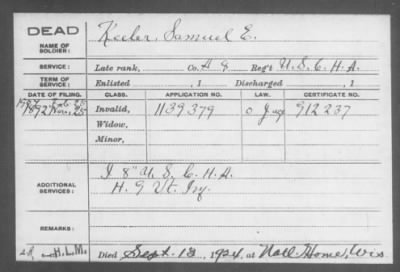 DEAD
NAME OF SOLDIER:
Keeler, Samuel E.
SERVICE:
Late rank, Co. A 8 Reg't U.S.C.H.A.
TERM OF SERVICE:
Enlisted , 1 Discharged , 1
DATE OF FILING. CLASS. APPLICATION NO. LAW. CERTIFICATE NO.
1892 Nov. 25 Invalid, 1139379 912237
Widow,
Minor,
ADDITIONAL SERVICES:
I 8" U.S.C.H.A.
H. 9 Vt. Inf.
REMARKS:
Died Sept. 13, 1924, at Natl. Home, Wis